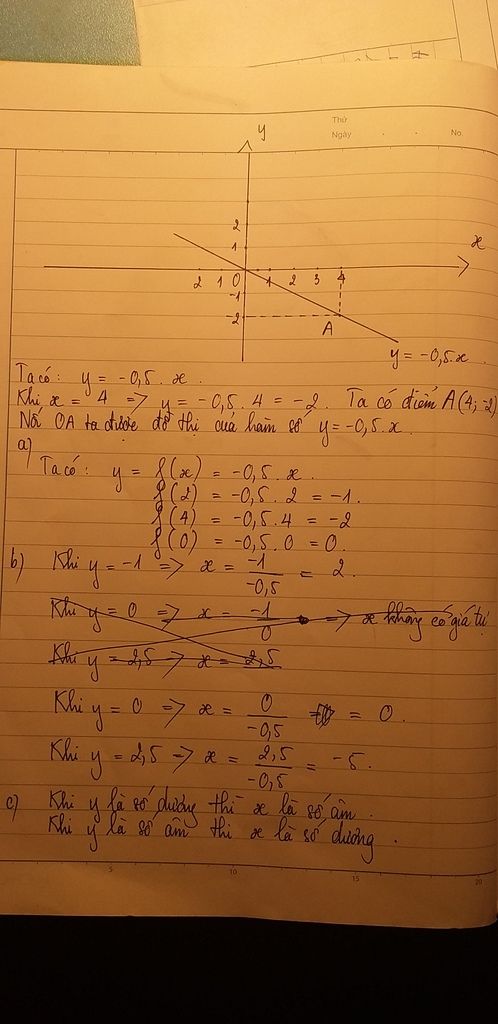 Thứ
Ngày
No.
y
x
2
1
2 1 0 1 2 3 4
-1
-2
A
y = -0,5.x
Ta có: y = -0,5.x.
Khi x = 4 => y = -0,5.4 = -2. Ta có điểm A(4;-2)
Nối OA ta được đồ thị của hàm số y = -0,5.x.
a)
Ta có: y = f(x) = -0,5.x.
f(2) = -0,5.2 = -1.
f(4) = -0,5.4 = -2
f(0) = -0,5.0 = 0.
b) Khi y = -1 => x = -1/-0,5 = 2.
Khi y = 0 => x = -1/0 => x không có giá trị
Khi y = 2,5 => x = 2,5
Khi y = 0 => x = 0/-0,5 = 0.
Khi y = 2,5 => x = 2,5/-0,5 = -5.
c) Khi y là số dương thì x là số âm.
Khi y là số âm thì x là số dương.
5 10 15 20